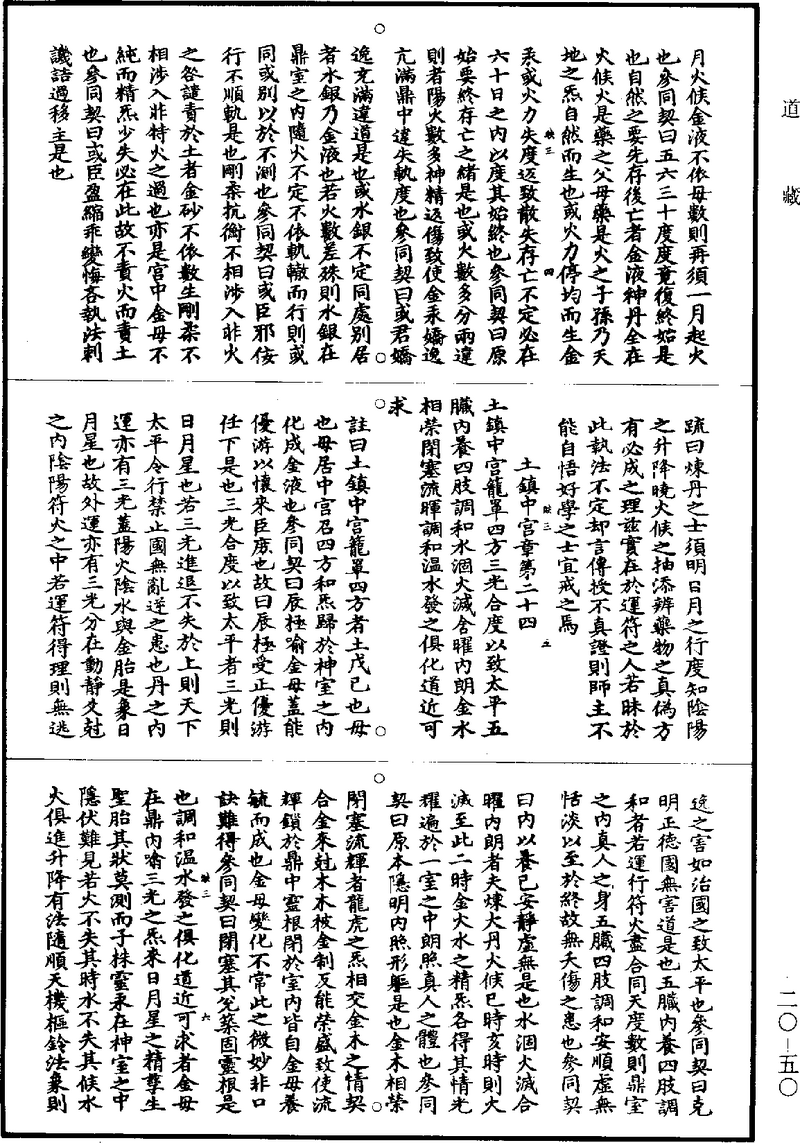 道藏
月火候金液不依母數則再須一月起火
也參同契曰五六三十度度竟復終始是
也自然之要先存後亡者金液神丹全在
火候火是藥之父母藥是火之子孫乃天
地之炁自然而生也或火力停均而生金
汞或火力失度迈致散失存亡不定必在
六十日之內以度其始終也參同契曰原
始要終存亡之緒是也或火數多分兩違
則者陽火數多神精返傷致使金汞驕逸
亢滿鼎中違失軌度也參同契曰或君驕
逸亢滿違道是也或水銀不定同處別居
者水銀乃金液也若火數差殊則水銀在
鼎室之內隨火不定不依軌轍而行則或
同或別以於不測也參同契曰或臣邪佞
行不順軌是也剛柔抗衡不相涉入非火
之咎譴責於土者金砂不依數生剛柔不
相涉入非特火之過也亦是宮中金母不
純而精炁少失必在此故不責火而責土
也參同契曰或臣盈縮乖變悔吝執法刺
譏詰過移主是也
疏曰煉丹之士須明日月之行度知陰陽
之升降曉火候之抽添辨藥物之真偽方
有必成之理茲實在於運符之人若昧於
此執法不定却言傳授不真證則師主不
能自悟好學之士宜戒之焉
土鎮中宮章第二十四
土鎮中宮籠罩四方三光合度以致太平五
臟內養四肢調和水涸火滅含曜內朗金水
相榮閉塞流暉調和溫水發之俱化道近可
求
註曰土鎮中宮籠罩四方者土戊己也母
也母居中宮召四方和炁歸於神室之內
化成金液也參同契曰辰極喻金母蓋能
優游以懷來臣庶也故曰辰極受正優游
任下是也三光合度以致太平者三光則
日月星也若三光進退不失於上則天下
太平令行禁止國無亂逆之患也丹之內
運亦有三光蓋陽火陰水與金胎是象日
月星也故外運亦有三光分在動靜爻尅
之內陰陽符火之中若運符得理則無逃
逸之害如治國之致太平也參同契曰克
明正德國無害道是也五臟內養四肢調
和者若運行符火盡合同天度數則鼎室
之內真人之身五臟四肢調和安順虛無
恬淡以至於終故無夭傷之患也參同契
曰內以養己安靜虛無是也水涸火滅含
曜內朗者夫煉大丹火候巳時亥時則火
滅至此二時金火水之精炁各得其情光
耀遍於一室之中朗照真人之體也參同
契曰原本隱明內照形軀是也金木相榮
閉塞流輝者龍虎之炁相交金木之情契
合金來尅木木被金制反能榮盛致使流
輝鎖於鼎中靈根閉於室內皆自金母養
毓而成也金母變化不常此之微妙非口
訣難得參同契曰閉塞其兌築固靈根是
也調和溫水發之俱化道近可求者金母
在鼎內喻三光之炁來日月星之精孽生
聖胎其狀莫測而子株靈汞在神室之中
隱伏難見若火不失其時水不失其候水
火俱進升降有法隨順天機樞鈐法象則
二〇—五〇